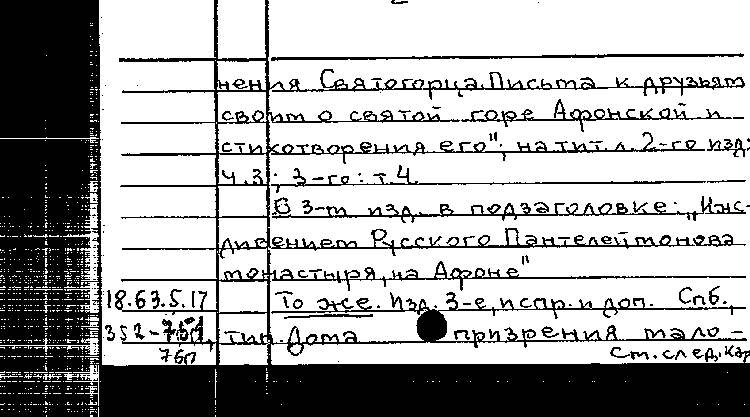 нения Святогорца. Письма к друзьям
своим о святой горе Афонской и
стихотворения его"; на тит. л. 2-го изд:
ч.3; 3-го: т.4.
В 3-м изд. в подзаголовке: „Иж-
дивением Русского Пантелеймонова
монастыря, на Афоне"
18.63.5.17 То же. Изд. 3-е, испр. и доп. Спб.,
352- тип. Дома призрения мало-
7бп См. след. кар